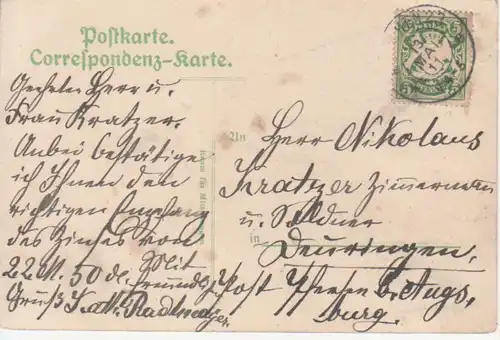 Postkarte.
Correspondenz-Karte.
Geehrter Herr u.
Frau Kratzer.
Anbei bestätige
ich Ihnen den
richtigen Empfang
des Zinses von
22 M. 50 d. Mit
freundsch.
Gruß Radlmajer.
An
Herrn Nikolaus
Kratzer Zimmerman
u. Söldner
in Deuringen,
Post Pfersee b. Augs,
burg.